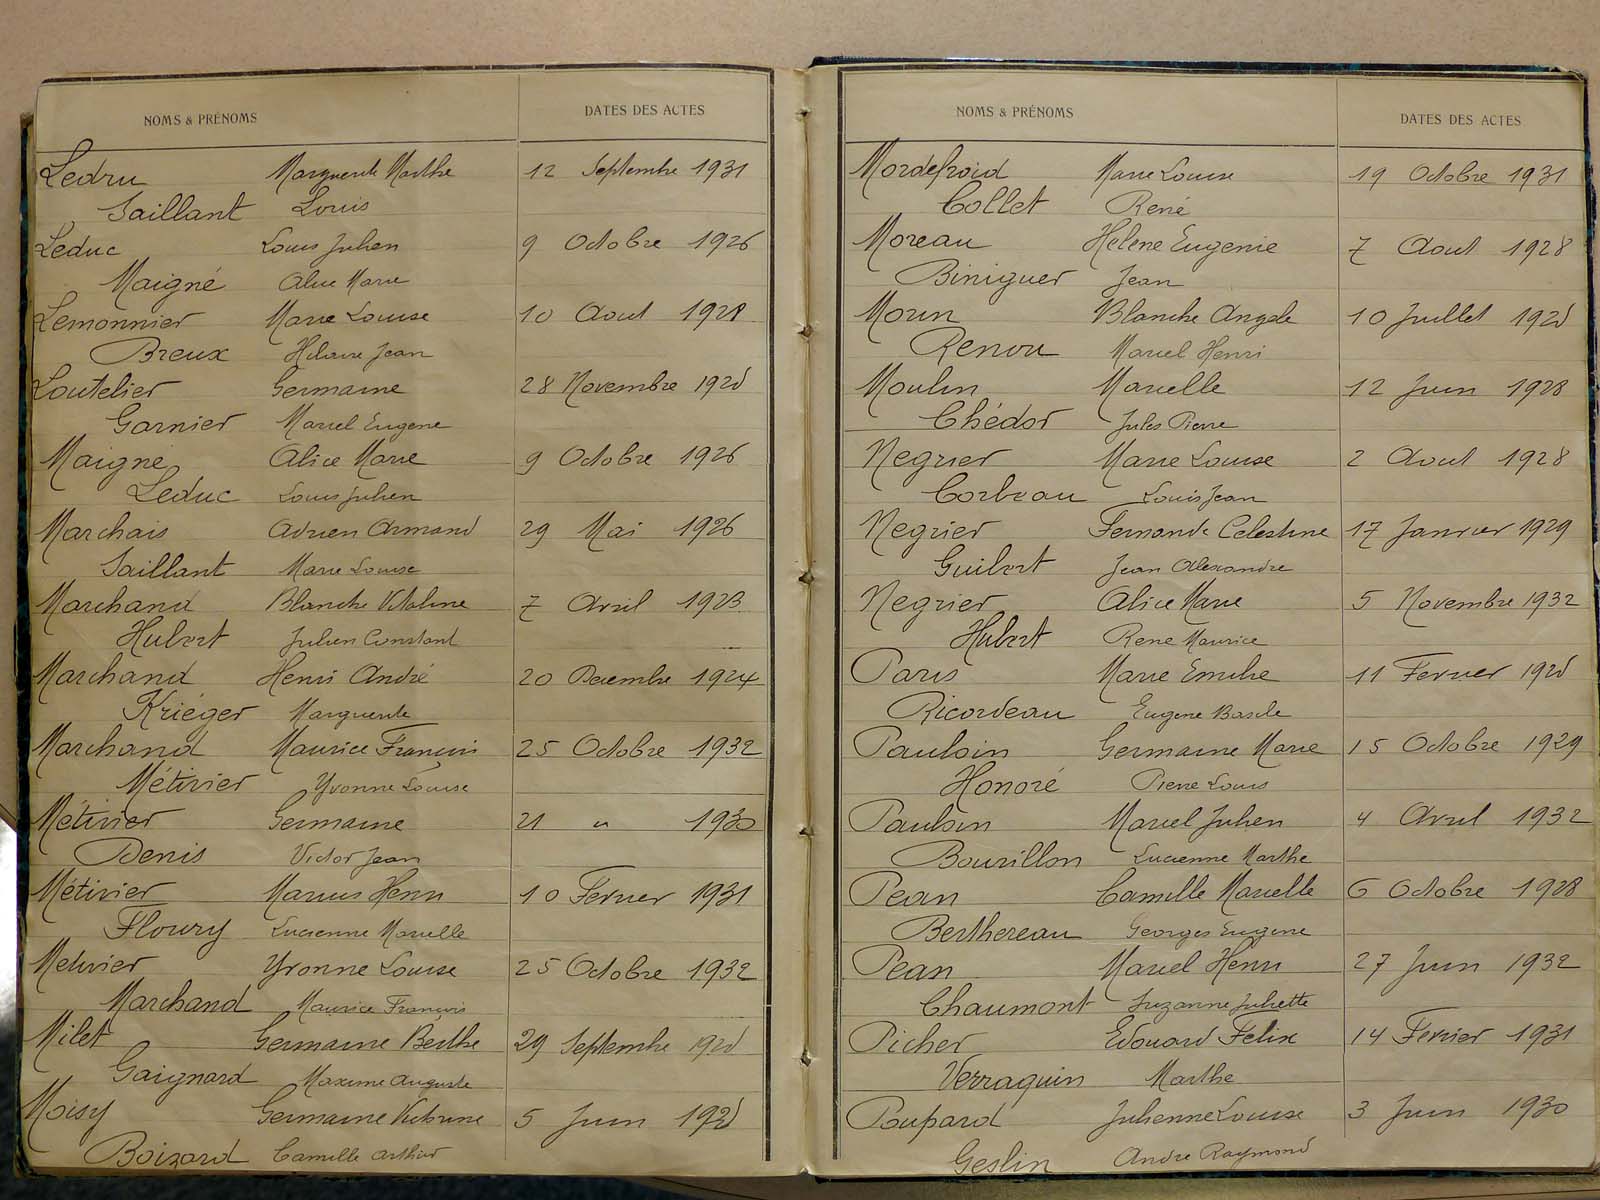 NOMS & PRÉNOMS DATES DES ACTES
Ledru Marguerite Marthe 12 Septembre 1931
Saillant Louis
Leduc Louis Julien 9 Octobre 1926
Maigné Alice Marie
Lemonnier Marie Louise 10 Aout 1928
Breux Hilaire Jean
Loutelier Germaine 28 Novembre
Garnier Marcel Eugene
Maigne Alice Marie 9 Octobre 1926
Leduc Louis Julien
Marchais Adrien Armand 29 Mai 1926
Saillant Marie Louise
Marchand Blanche Vitaline 7 Avril 1923
Hubert Julien Constant
Marchand Henri André 20 Decembre 1924
Kriéger Marguerite
Marchand Maurice François 25 Octobre 1932
Métivier Yvonne Louise
Métivier Germaine 21 " 1930
Denis Victor Jean
Métivier Marcus Henri 10 Fevrier 1931
Floury Lucienne Marcelle
Metivier Yvonne Louise 25 Octobre 1932
Marchand Maurice François
Milet Germaine Berthe 29 Septembre
Gaignard Maxime Auguste
Moisy Germaine Victorine 5 Juin
Boizard Camille Arthur
NOMS & PRÉNOMS DATES DES ACTES
Mordefroid Marie Louise 19 Octobre 1931
Collet René
Moreau Helene Eugenie 7 Aout 1928
Biniguer Jean
Morin Blanche Angele 10 Juillet
Renou Marcel Henri
Moulin Marcelle 12 Juin 1928
Chédor Jules Pierre
Negrier Marie Louise 2 Aout 1928
Corbeau Louis Jean
Negrier Fernande Celestine 17 Janvier 1929
Guibert Jean Alexandre
Negrier Alice Marie 5 Novembre 1932
Hubert René Maurice
Paris Marie Emilie 11 Fevrier
Ricordeau Eugene Basile
Pauloin Germaine Marie 15 Octobre 1929
Honoré Pierre Louis
Pauloin Marcel Julien 4 Avril 1932
Bourillon Lucienne Marthe
Pean Camille Marcelle 6 Octobre 1928
Berthereau Georges Eugene
Pean Marcel Henri 27 Juin 1932
Chaumont Suzanne Juliette
Picher Edouard Felix 14 Fevrier 1931
Verraquin Marthe
Poupard Julienne Louise 3 Juin 1930
Geslin André Raymond